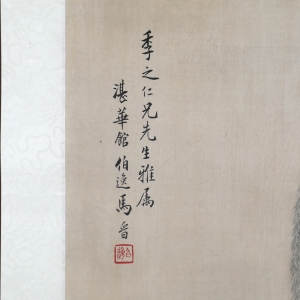 季之仁兄先生雅属
湛華館伯逸馬晋